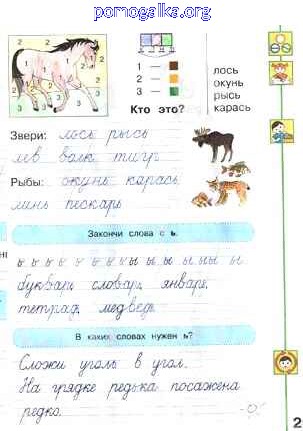 pomogalka.org
2 2 2
2 1 2
3 1 3
1 —
2 —
3 —
Кто это?
лось
окунь
рысь
карась
Звери: лось рысь
лев волк тигр
Рыбы: окунь карась
линь пескарь
Закончи слова с ь.
ь ь ь ь ь ь ь ь ы ы ы ы ы ы
букварь словарь январь
тетрадь медведь
В каких словах нужен ь?
Сложи уголь в угол.
На грядке редька посажена
редко.
2